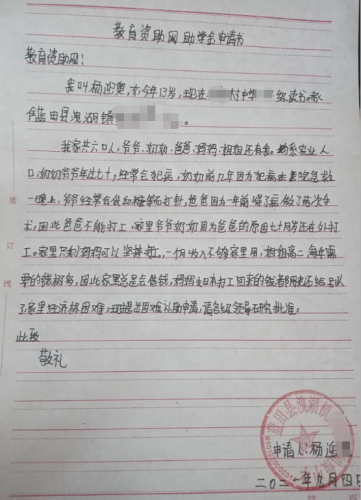 教育资助网助学金申请书
教育资助网：
我叫杨迎 ，我今年13岁，现在 村中学 级读书。家
住蓝田县洩湖镇 。
我家共六口人，爷爷、奶奶、爸爸、妈妈、姐姐还有我。均系农业人
口，奶奶爷爷年过七十，经常会犯病，奶奶前几年因为犯病 医院急救
一晚上，爷爷经常在低血糖 打针，爸爸因为一年前 做了两次手
术，因此爸爸不能打工，家里爷爷奶奶因为爸爸的原因七十几岁还在外打
工。家里只剩妈妈可以坚持打工，一个月收入不够家里用，姐姐高二每年需
要的钱很多，因此家里总是去借钱，妈妈 打工回来的钱都用来还给
了家里经济很困难，现提出困难补助申请，请各级领导研究批准。
此致
敬礼
申请人：杨迎
二〇二一年九月四日
蓝田县洩湖镇
装订线